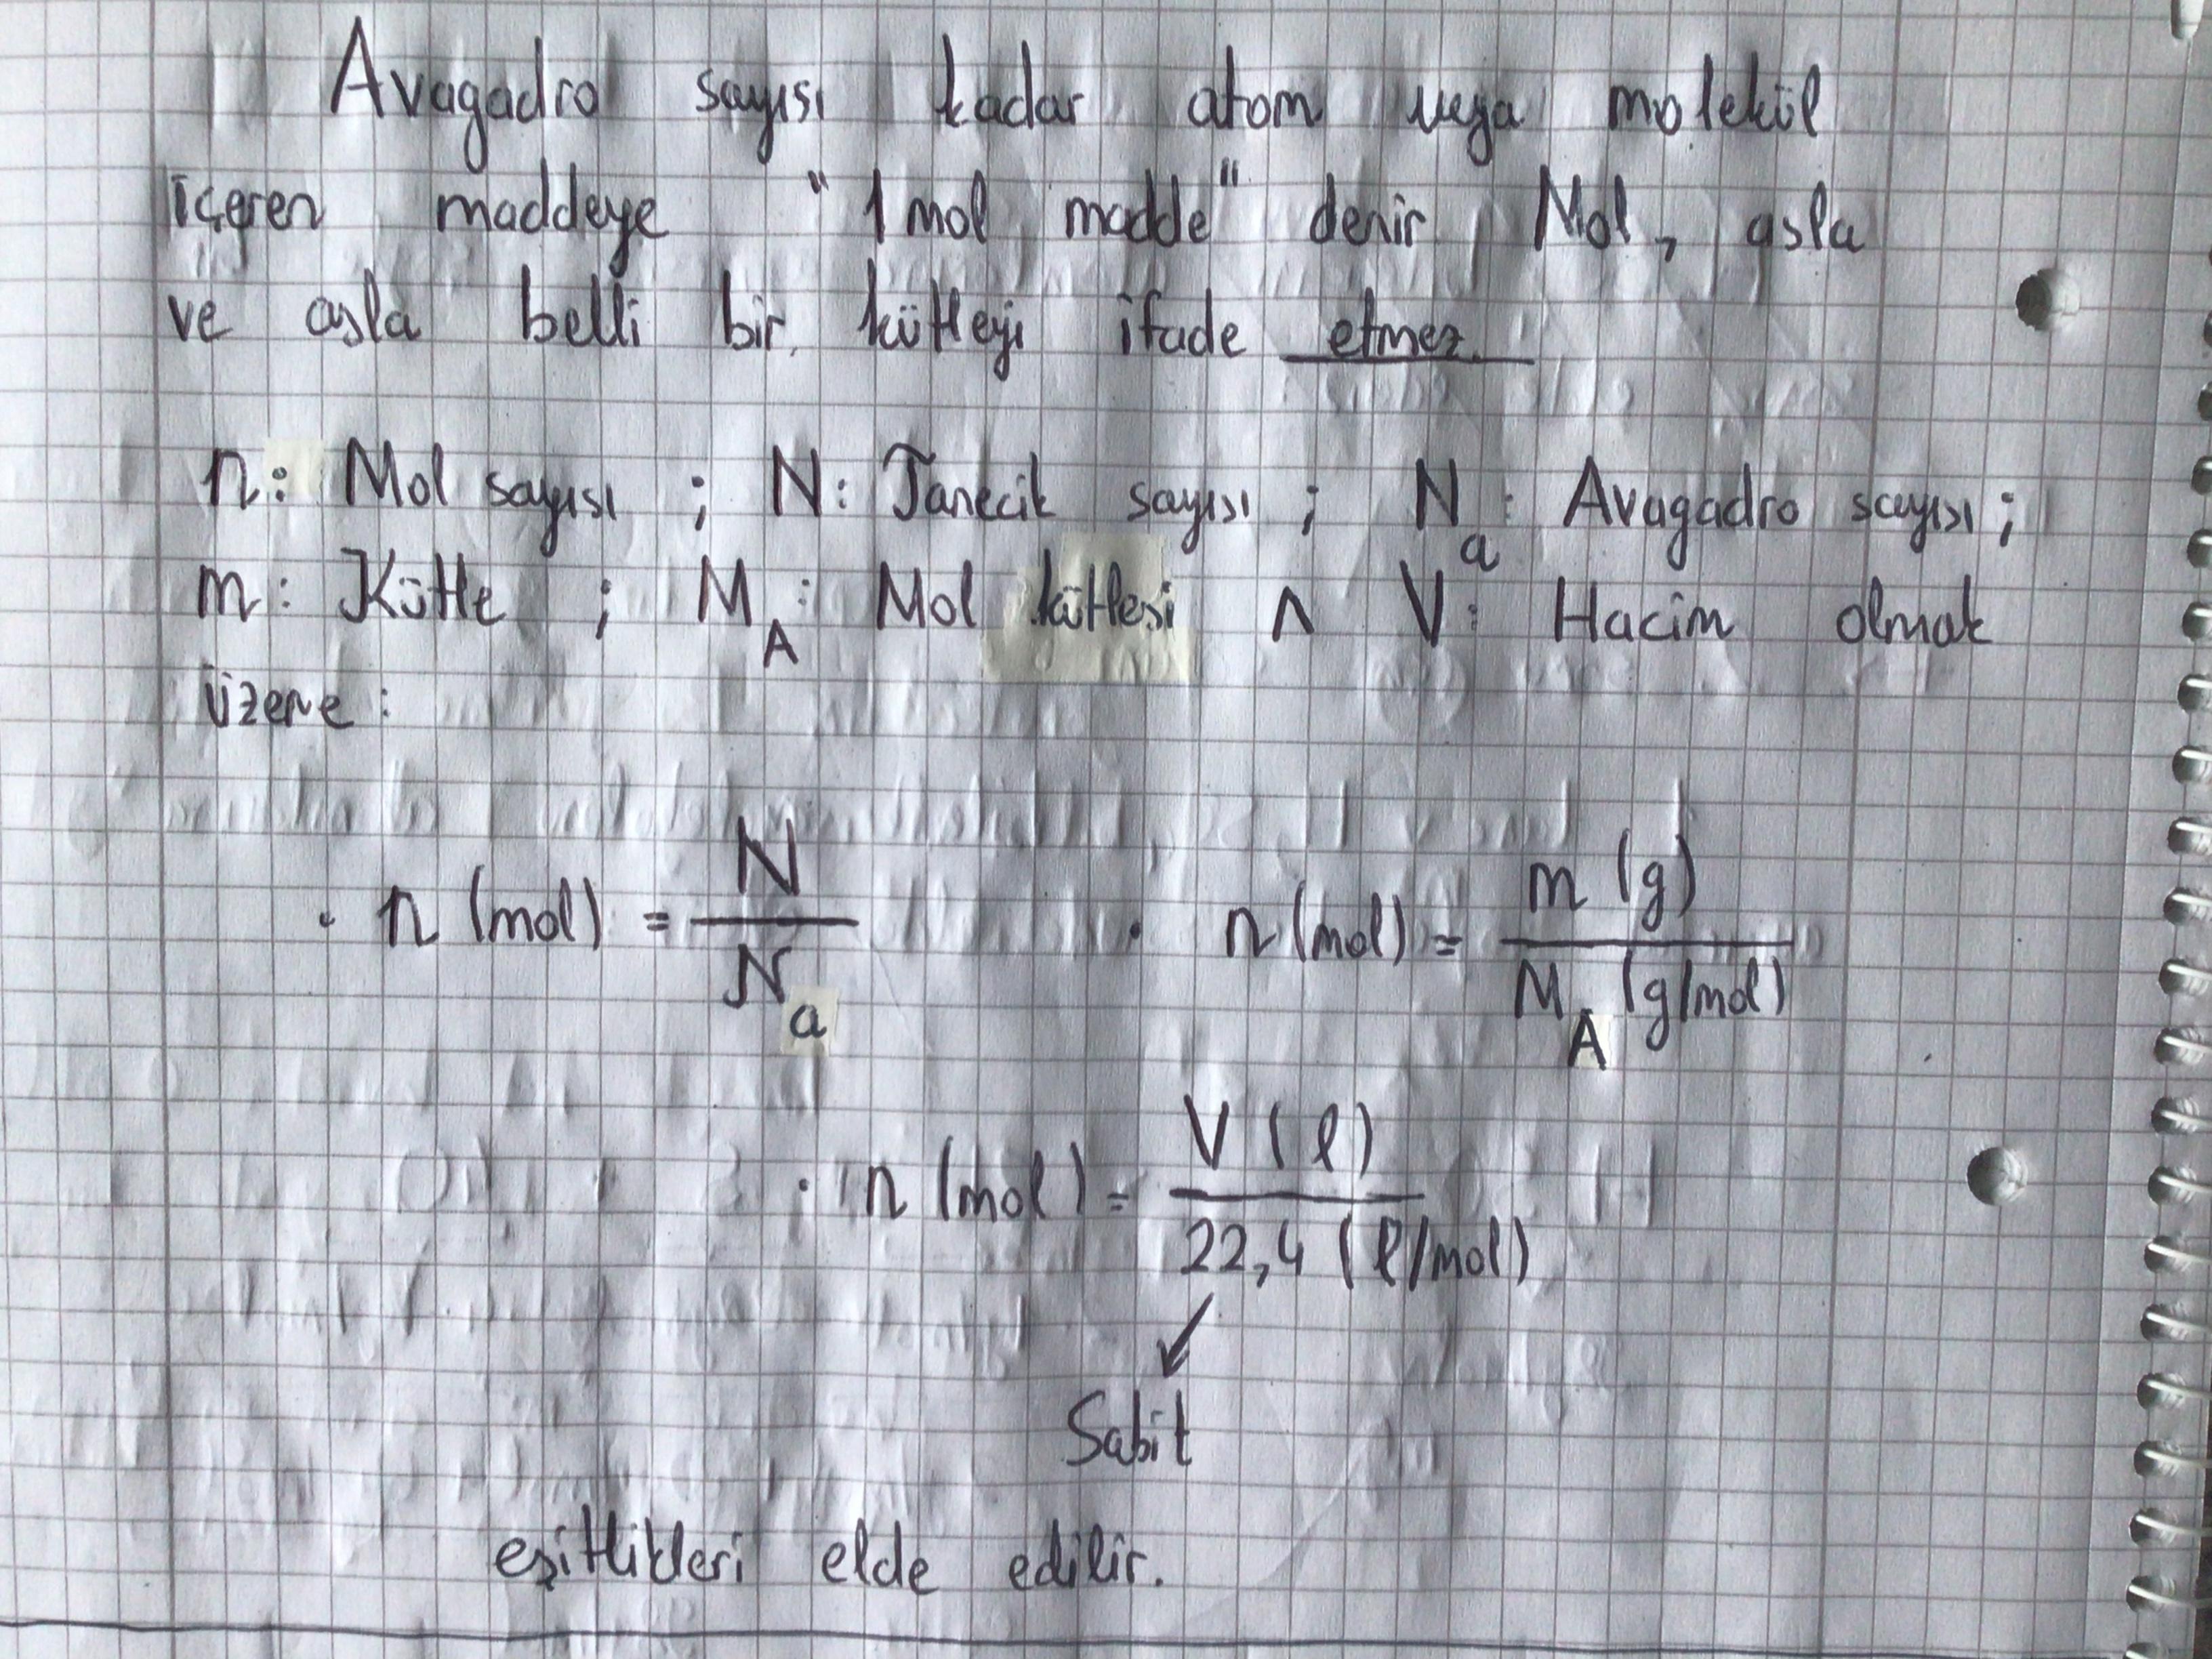 Avagadro sayısı kadar atom veya molekül
içeren maddeye "1 mol madde" denir. Mol, asla
ve asla belli bir kütleyi ifade etmez.
n: Mol sayısı ; N: Tanecik sayısı ; Nₐ: Avagadro sayısı ;
m: Kütle ; M_A: Mol kütlesi ∧ V: Hacim olmak
üzere :
· n (mol) = N / Nₐ · n (mol) = m (g) / M_A (g/mol)
· n (mol) = V (l) / 22,4 (l/mol)
Sabit
eşitlikleri elde edilir.